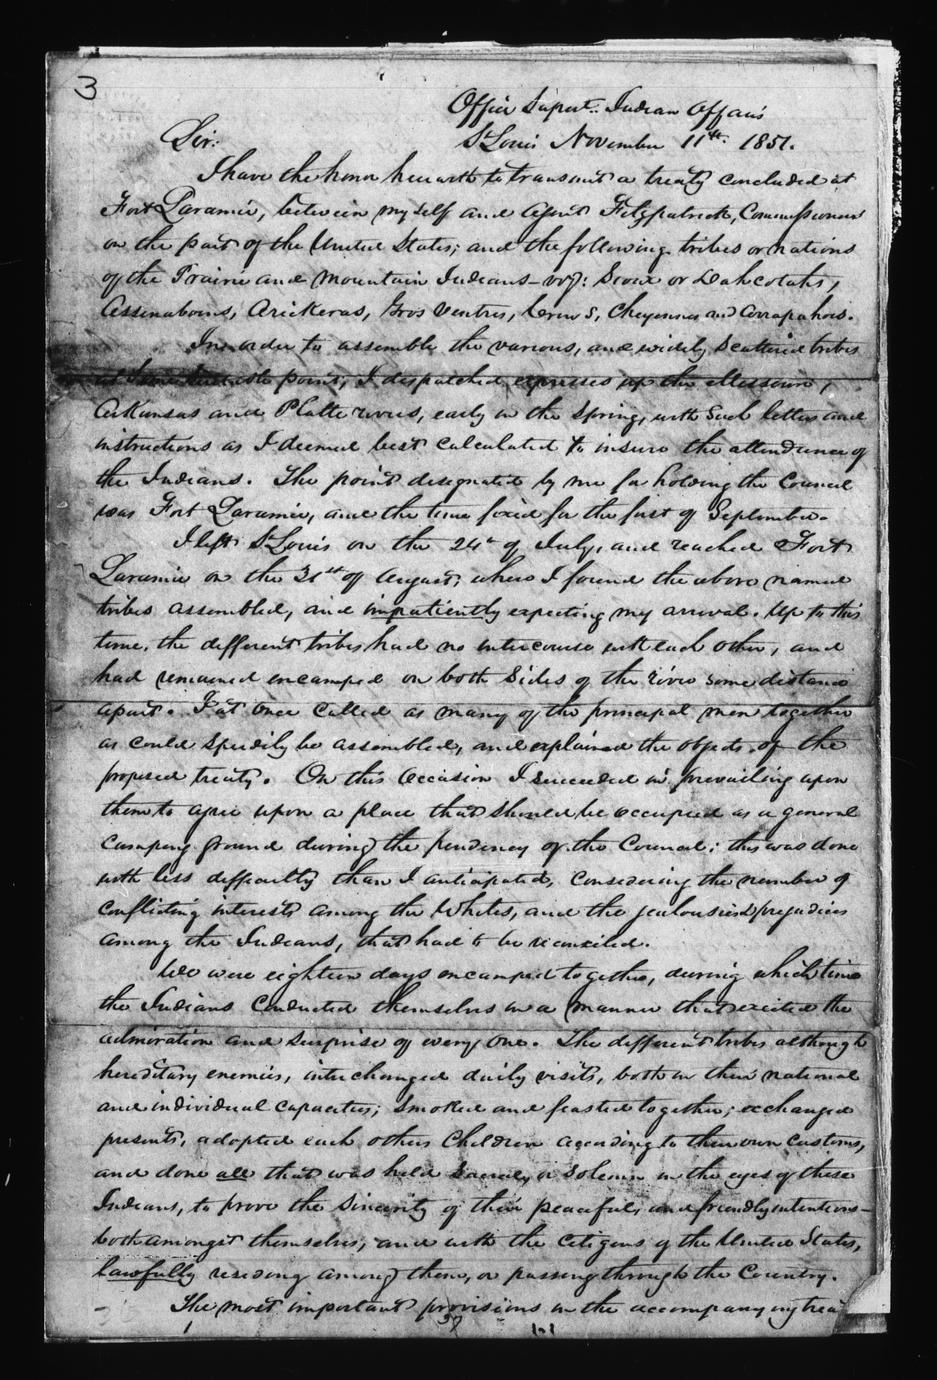 3
Office Supert. Indian Affairs
St Louis November 11th. 1851.
Sir:
I have the honor herewith to transmit a treaty concluded at
Fort Laramie, between myself and Agent Fitzpatrick, Commissioners
on the part of the United States; and the following tribes or nations
of the Prairie and Mountain Indians viz: Sioux or Dahcotahs,
Assinaboins, Arickeras, Gros Ventres, Crows, Cheyennes and Arrapahoes.
In order to assemble the various, and widely scattered tribes
at some suitable point, I despatched expresses up the Missouri,
Arkansas and Platte rivers, early in the Spring, with such letters and
instructions as I deemed best calculated to insure the attendance of
the Indians. The point designated by me for holding the Council
was Fort Laramie, and the time fixed for the first of September.
I left St Louis on the 24th of July, and reached Fort
Laramie on the 31st of August, where I found the above named
tribes assembled, and impatiently expecting my arrival. Up to this
time, the different tribes had no intercourse with each other, and
had remained encamped on both sides of the river some distance
apart. I at once called as many of the principal men together
as could speedily be assembled, and explained the objects of the
proposed treaty. On this occasion I succeeded in prevailing upon
them to agree upon a place that should be occupied as a general
camping ground during the pendency of the Council; this was done
with less difficulty than I anticipated, considering the number of
conflicting interests among the Whites, and the jealousies & prejudices
among the Indians, that had to be reconciled.
We were eighteen days encamped together, during which time
the Indians conducted themselves in a manner that excited the
admiration and surprise of every one. The different tribes although
hereditary enemies, interchanged daily visits, both in their national
and individual capacities; smoked and feasted together; exchanged
presents, adopted each others children according to their own customs,
and done all that was held sacred, or solemn in the eyes of these
Indians, to prove the sincerity of their peaceful, and friendly intentions—
both amongst themselves, and with the citizens of the United States,
lawfully residing among them, or passing through the Country.
The most important provisions in the accompanying trea